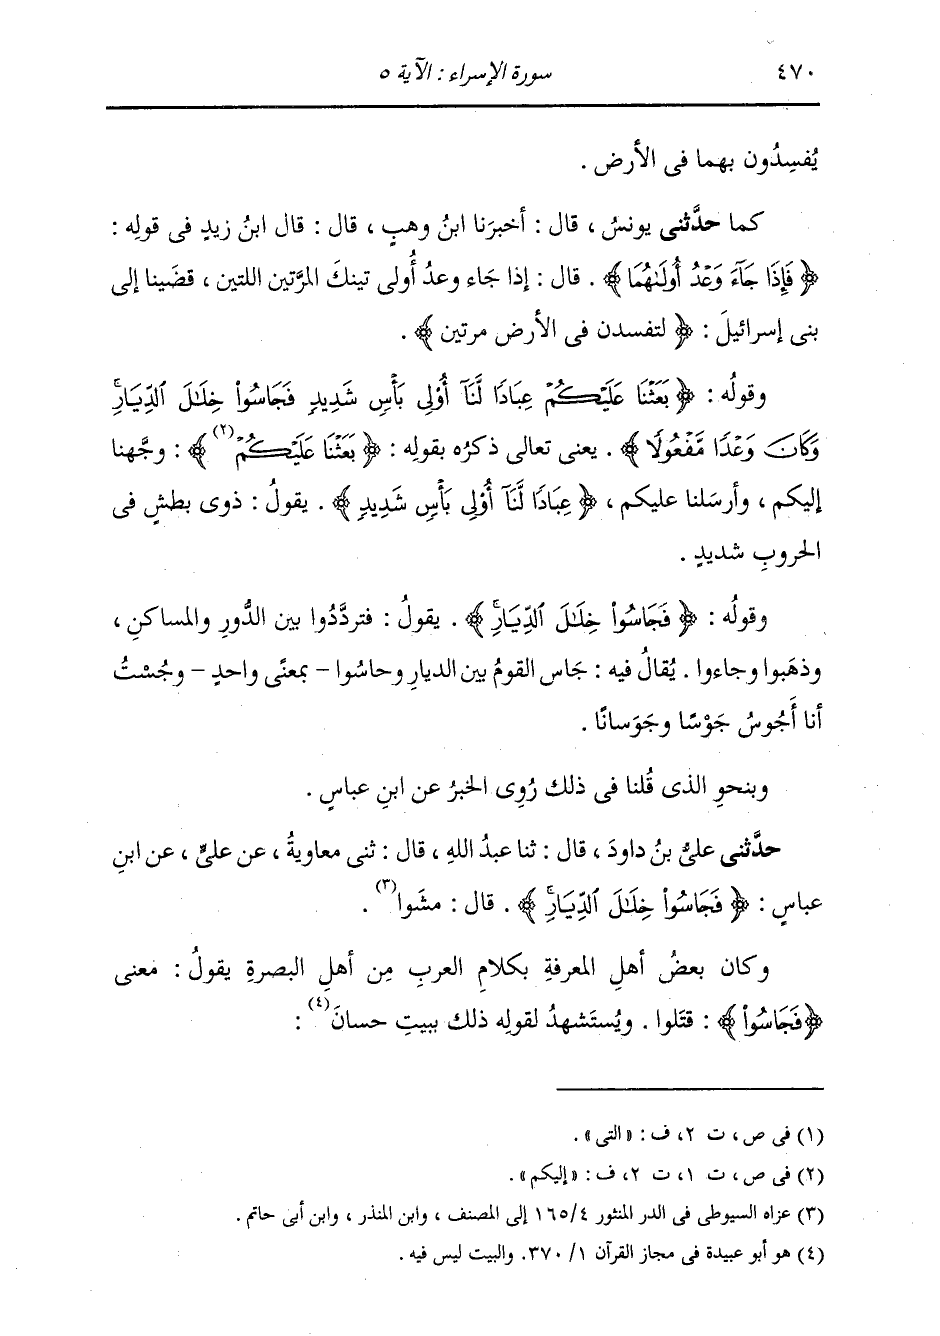 ٤٧٠ سورة الإسراء : الآية ٥
يُفسِدُون بهما فى الأرض .
كما حدَّثنى يونسُ ، قال : أخبرَنا ابنُ وهبٍ ، قال : قال ابنُ زيدٍ فى قولِه :
﴿ فَإِذَا جَآءَ وَعْدُ أُولَىٰهُمَا ﴾ . قال : إذا جاء وعدُ أُولى تينكَ المرَّتين اللتين ، قضَينا إلى
بنى إسرائيلَ : ﴿ لتفسدن فى الأرض مرتين ﴾ .
وقولُه : ﴿ بَعَثْنَا عَلَيْكُمْ عِبَادًا لَّنَآ أُوْلِى بَأْسٍ شَدِيدٍ فَجَاسُوا۟ خِلَٰلَ ٱلدِّيَارِۚ
وَكَانَ وَعْدًا مَّفْعُولًا ﴾ . يعنى تعالى ذكرُه بقولِه : ﴿ بَعَثْنَا عَلَيْكُمْ(٢) ﴾ : وجَّهنا
إليكم ، وأرسَلنا عليكم ، ﴿ عِبَادًا لَّنَآ أُوْلِى بَأْسٍ شَدِيدٍ ﴾ . يقولُ : ذوى بطشٍ فى
الحروبِ شديدٍ .
وقولُه : ﴿ فَجَاسُوا۟ خِلَٰلَ ٱلدِّيَارِۚ ﴾ . يقولُ : فتردَّدُوا بين الدُّورِ والمساكنِ ،
وذهَبوا وجاءوا . يُقالُ فيه : جَاس القومُ بين الديارِ وحاسُوا – بمعنًى واحدٍ – وجُسْتُ
أنا أَجُوسُ جَوْسًا وجَوَسانًا .
وبنحوِ الذى قُلنا فى ذلك رُوِى الخبرُ عن ابنِ عباسٍ .
حدَّثنى علىُّ بنُ داودَ ، قال : ثنا عبدُ اللهِ ، قال : ثنى معاويةُ ، عن علىٍّ ، عن ابنِ
عباسٍ : ﴿ فَجَاسُوا۟ خِلَٰلَ ٱلدِّيَارِۚ ﴾ . قال : مشَوا(٣) .
وكان بعضُ أهلِ المعرفةِ بكلامِ العربِ مِن أهلِ البصرةِ يقولُ : معنى
﴿ فَجَاسُوا۟ ﴾ : قتَلوا . ويُستَشهدُ لقولِه ذلك ببيتِ حسانَ(٤) :
(١) فى ص ، ت ٢، ف : «التى» .
(٢) فى ص ، ت ١، ت ٢، ف : «إليكم» .
(٣) عزاه السيوطى فى الدر المنثور ١٦٥/٤ إلى المصنف ، وابن المنذر ، وابن أبى حاتم .
(٤) هو أبو عبيدة فى مجاز القرآن ١/ ٣٧٠. والبيت ليس فيه .